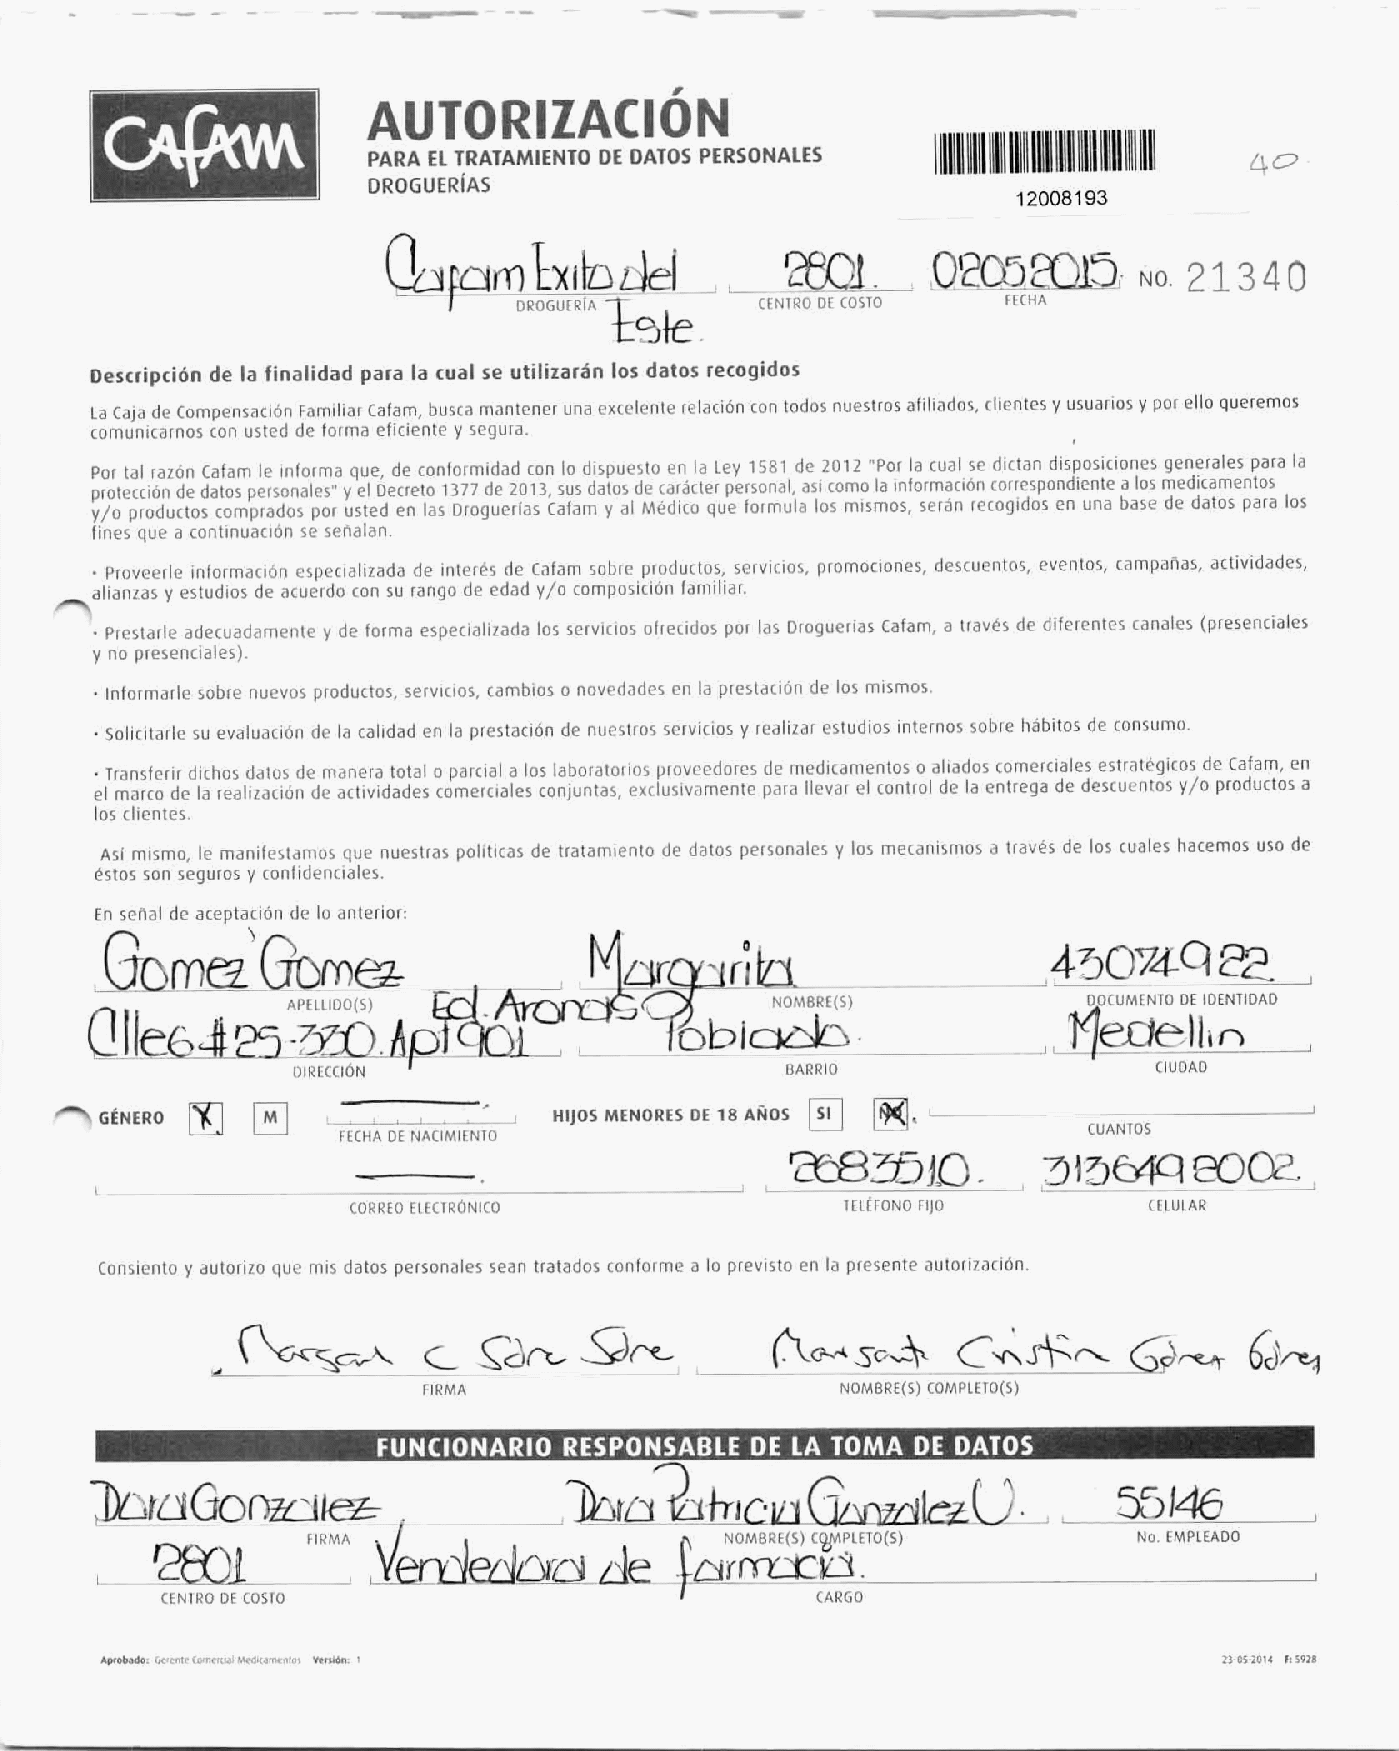 CAFAM
AUTORIZACIÓN
PARA EL TRATAMIENTO DE DATOS PERSONALES
DROGUERÍAS
12008193
40.
Cafam Exito del 2801. 02052015. NO. 21340
DROGUERÍA CENTRO DE COSTO FECHA
Este.
Descripción de la finalidad para la cual se utilizarán los datos recogidos
La Caja de Compensación Familiar Cafam, busca mantener una excelente relación con todos nuestros afiliados, clientes y usuarios y por ello queremos
comunicarnos con usted de forma eficiente y segura.
Por tal razón Cafam le informa que, de conformidad con lo dispuesto en la Ley 1581 de 2012 "Por la cual se dictan disposiciones generales para la
protección de datos personales" y el Decreto 1377 de 2013, sus datos de carácter personal, así como la información correspondiente a los medicamentos
y/o productos comprados por usted en las Droguerías Cafam y al Médico que formula los mismos, serán recogidos en una base de datos para los
fines que a continuación se señalan.
· Proveerle información especializada de interés de Cafam sobre productos, servicios, promociones, descuentos, eventos, campañas, actividades,
alianzas y estudios de acuerdo con su rango de edad y/o composición familiar.
· Prestarle adecuadamente y de forma especializada los servicios ofrecidos por las Droguerías Cafam, a través de diferentes canales (presenciales
y no presenciales).
· Informarle sobre nuevos productos, servicios, cambios o novedades en la prestación de los mismos.
· Solicitarle su evaluación de la calidad en la prestación de nuestros servicios y realizar estudios internos sobre hábitos de consumo.
· Transferir dichos datos de manera total o parcial a los laboratorios proveedores de medicamentos o aliados comerciales estratégicos de Cafam, en
el marco de la realización de actividades comerciales conjuntas, exclusivamente para llevar el control de la entrega de descuentos y/o productos a
los clientes.
Así mismo, le manifestamos que nuestras políticas de tratamiento de datos personales y los mecanismos a través de los cuales hacemos uso de
éstos son seguros y confidenciales.
En señal de aceptación de lo anterior:
Gomez Gomez Margarita 43074922
APELLIDO(S) NOMBRE(S) DOCUMENTO DE IDENTIDAD
Ed.
Clle6#25-330.Apt901 Poblado. Medellin
DIRECCIÓN BARRIO CIUDAD
GÉNERO X M FECHA DE NACIMIENTO HIJOS MENORES DE 18 AÑOS SI NO CUANTOS
2683510. 3136498002.
CORREO ELECTRÓNICO TELÉFONO FIJO CELULAR
Consiento y autorizo que mis datos personales sean tratados conforme a lo previsto en la presente autorización.
Cristin Gómez Gómez
FIRMA NOMBRE(S) COMPLETO(S)
FUNCIONARIO RESPONSABLE DE LA TOMA DE DATOS
Dora Gonzalez Dora Patricia Gonzalez U. 55146
FIRMA NOMBRE(S) COMPLETO(S) No. EMPLEADO
2801 Vendedora de farmacia.
CENTRO DE COSTO CARGO
Aprobado: Gerente Comercial Medicamentos Versión: 1 23-05-2014 F: 5928